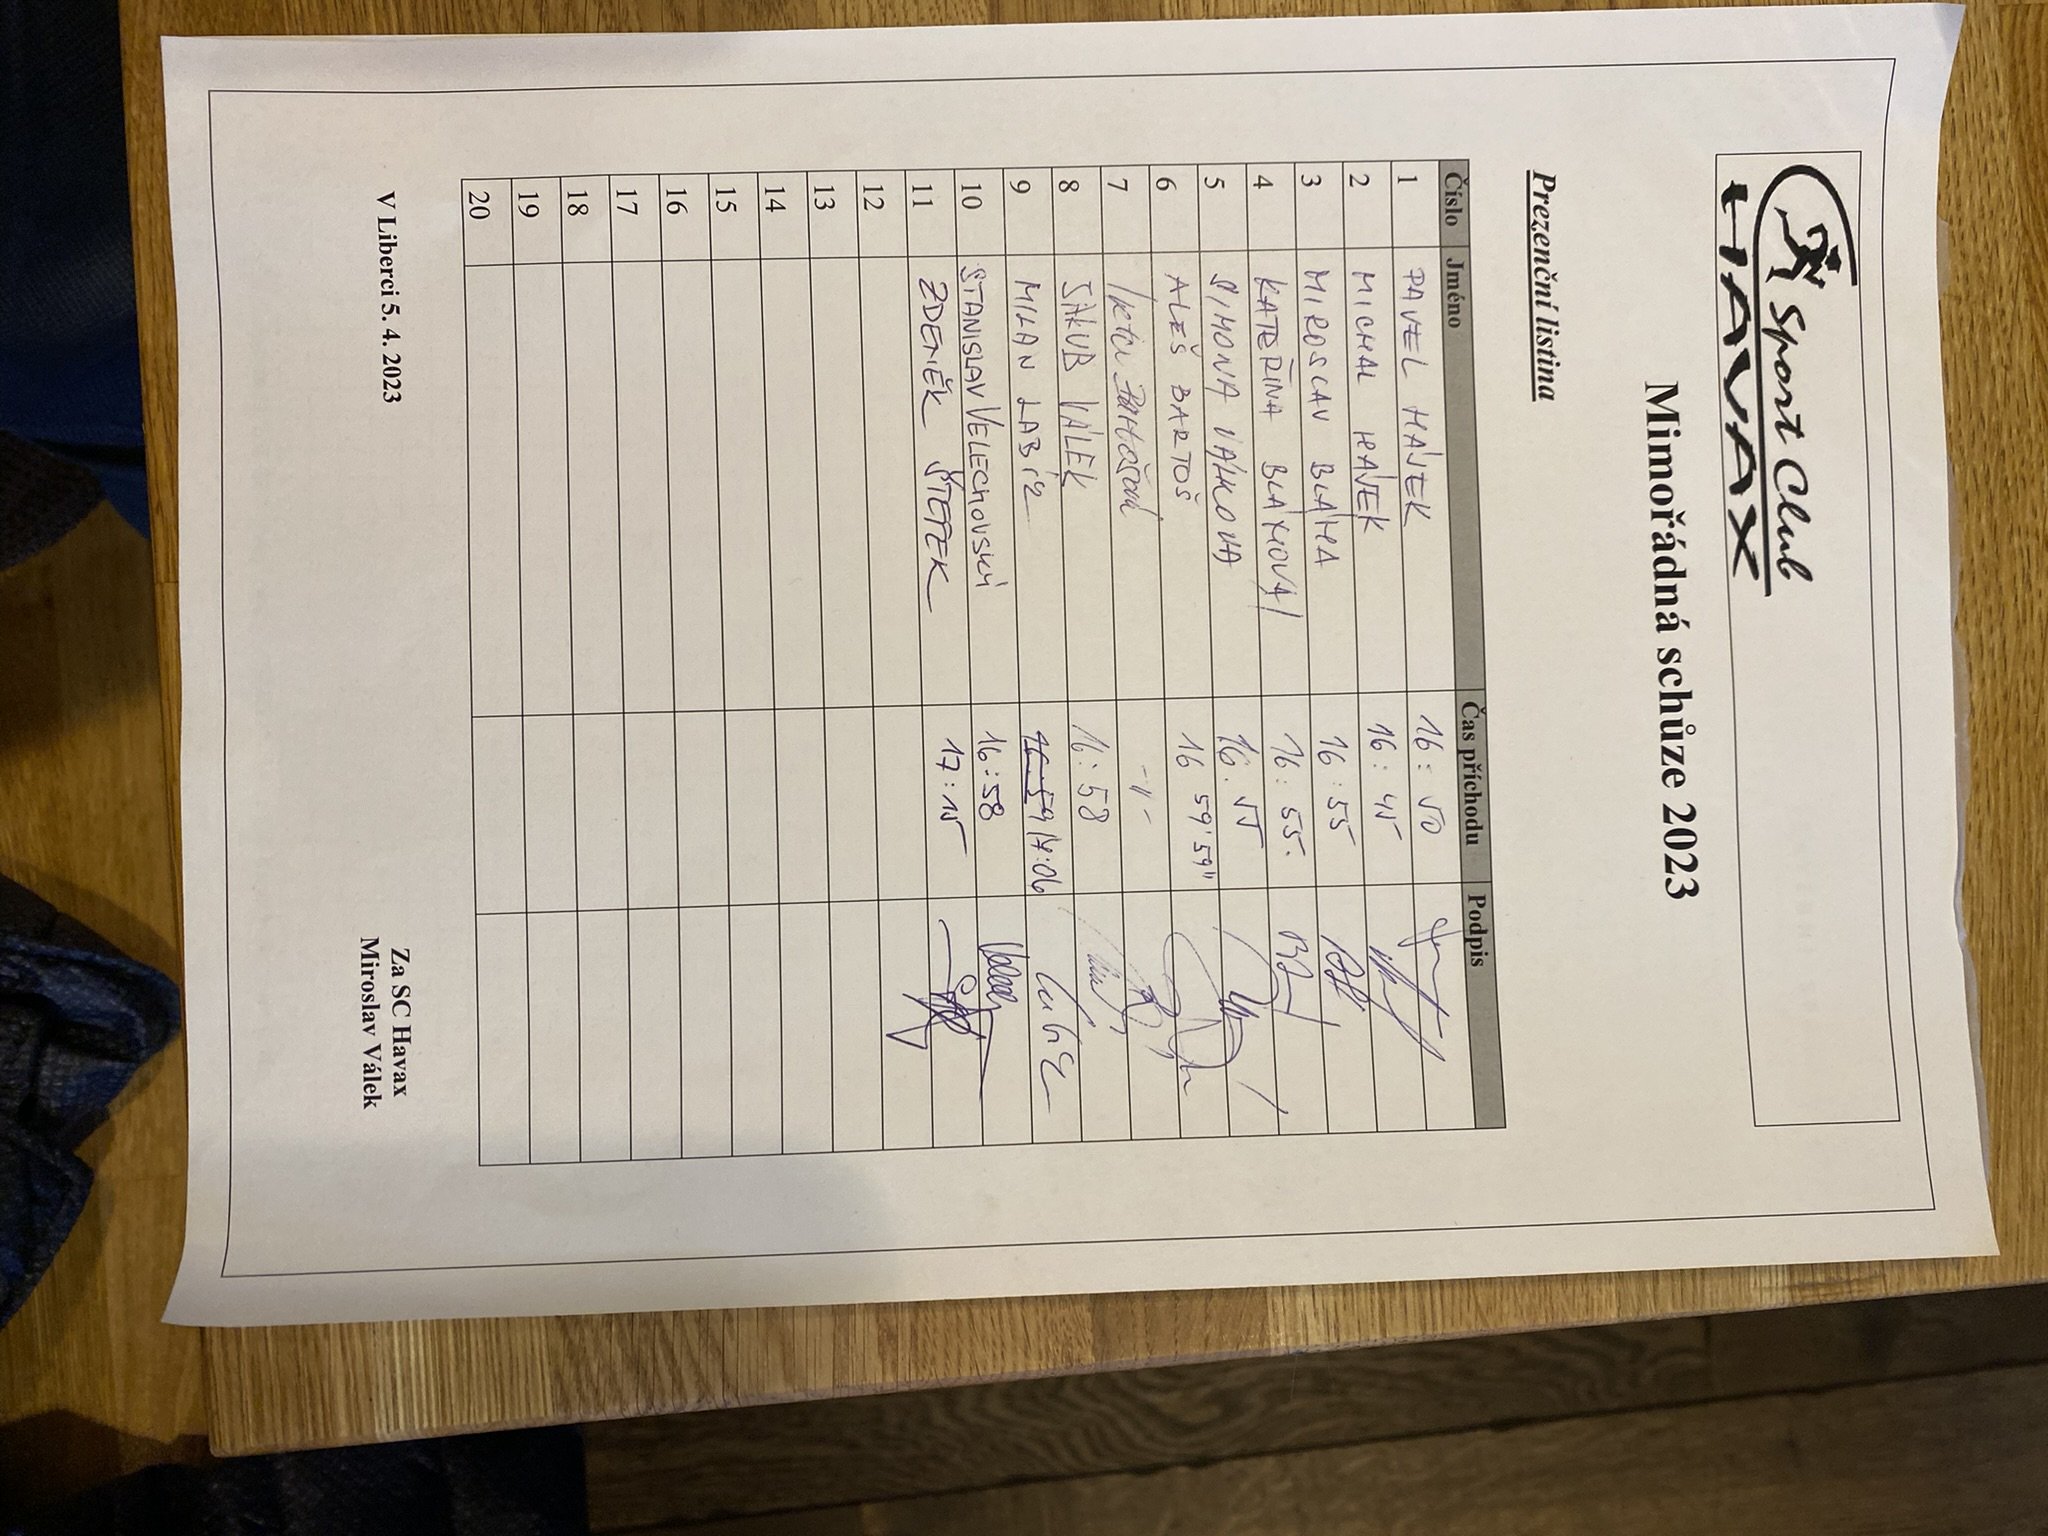 Sport Club
HAVAX
Mimořádná schůze 2023
Prezenční listina
Číslo Jméno Čas příchodu Podpis
1 PAVEL HÁJEK 16:50
2 MICHAL HÁJEK 16:45
3 MIROSLAV BLÁHA 16:55
4 KATEŘINA BLÁHOVÁ 16:55.
5 SIMONA VÁLKOVÁ 16:55
6 ALEŠ BARTOŠ 16 59'59"
7 Bartošová -"-
8 JAKUB VÁLEK 16:58
9 MILAN 16:59 17:06
10 STANISLAV VELECHOVSKÝ 16:58
11 ZDENĚK ŠTEFEK 17:15
12
13
14
15
16
17
18
19
20
V Liberci 5. 4. 2023
Za SC Havax
Miroslav Válek